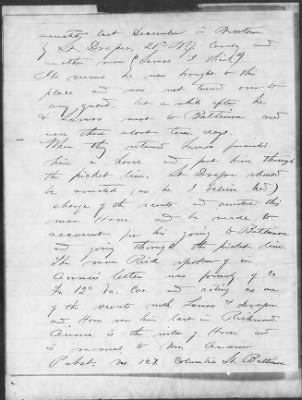 arrested last December in Newtown
by Lt Draper, 21st N.Y. Cavalry and
another man (Lewis I think)
It seems he was brought to this
place and was not turned over to
any guard. but a while after he
& went to Baltimore and
were there about ten days.
When they returned furnished
him a horse and put him through
the picket line. Lt Draper should
be arrested (as he I believe had
charge of the scouts and arrested this
man Horn and be made to
account for his going to Baltimore
and going through the picket line
The man Reid spoken of in
Annie's letter was formerly of Co
12th Va. Cav and acting as one
of the scouts with & Draper
and Horn him last in Richmond
Annie is the sister of Horn and
is married to Mr
Pabst. No 127 Columbia St. Baltimore.